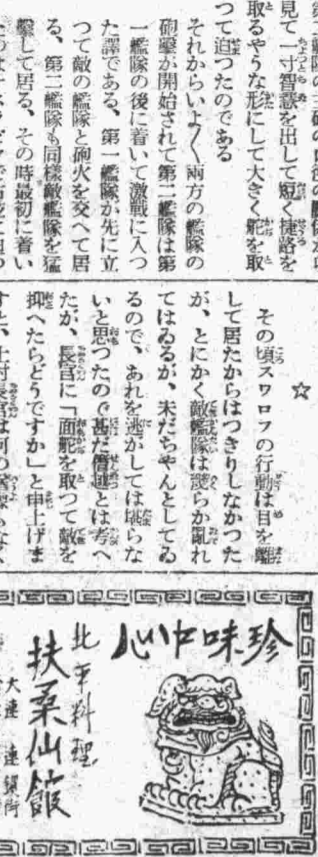 見て一寸智慧を出して短く捷路を
取るやうな形にして大きく舵を取
つて迫つたのである
それからいよ〳〵兩方の艦隊の
砲擊が開始されて第二艦隊は第
一艦隊の後に着いて激戰に入つ
た譯である、第一艦隊が先に立
つて敵の艦隊と砲火を交へて居
る、第二艦隊も同樣敵艦隊を猛
擊して居る、その時最初に着い
☆
その頃スワロフの行動は目を離
して居たからはつきりしなかつた
が、とにかく敵艦隊は幾らか亂れ
てはゐるが、未だちやんとしてゐ
るので、あれを逃がしては堪らな
いと思つたので甚だ僭越とは考へ
たが、長官に「面舵を取つて敵を
抑へたらどうですか」と申上げま
すと、上村長官は何の
珍味中心
北平料理
扶桑仙館
大連 連鎖街